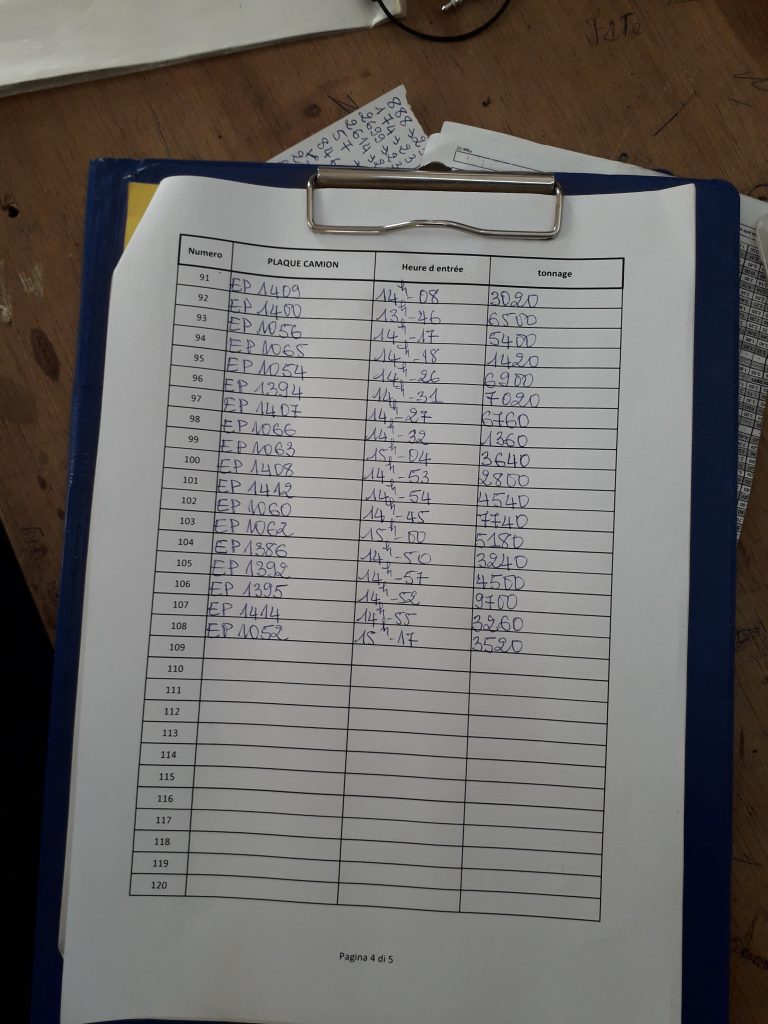 JaTe
Numero PLAQUE CAMION Heure d entrée tonnage
91 EP 1409 14h-08 3020
92 EP 1400 13h-46 6500
93 EP 1056 14h-17 5400
94 EP 1065 14h-18 1420
95 EP 1054 14h-26 6900
96 EP 1394 14h-31 7020
97 EP 1407 14h-27 6760
98 EP 1066 14h-32 1360
99 EP 1063 15h-04 3640
100 EP 1408 14h-53 2800
101 EP 1412 14h-54 4540
102 EP 1060 14h-45 7740
103 EP 1062 15h-00 5180
104 EP 1386 14h-50 3240
105 EP 1392 14h-57 4500
106 EP 1395 14h-52 9700
107 EP 1414 14h-55 3260
108 EP 1052 15h-17 3520
109
110
111
112
113
114
115
116
117
118
119
120
Pagina 4 di 5